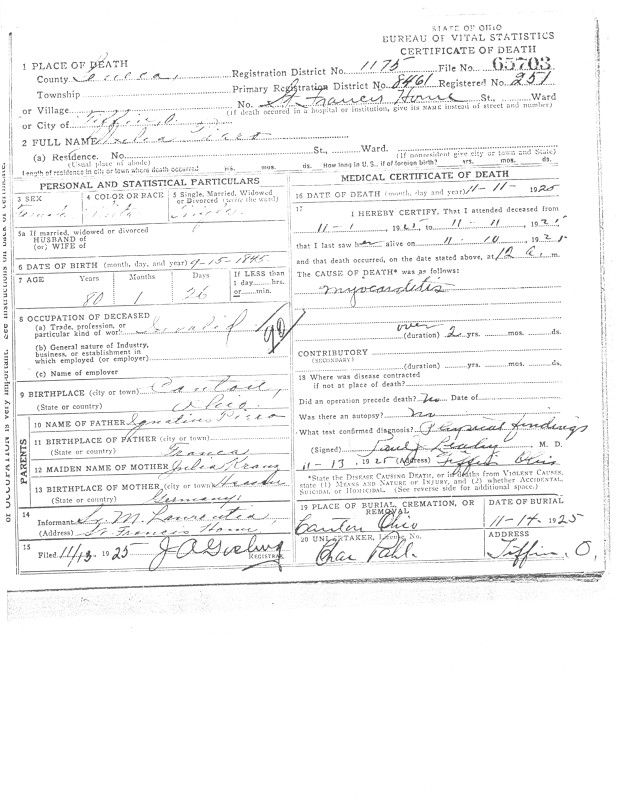 STATE OF OHIO
BUREAU OF VITAL STATISTICS
CERTIFICATE OF DEATH
1 PLACE OF DEATH
County Seneca, Registration District No. 1175 File No. 65703
Township Primary Registration District No. 8461 Registered No. 251
or Village No. St Francis Home St., Ward
(If death occurred in a hospital or institution, give its NAME instead of street and number)
or City of Tiffin, O
2 FULL NAME
(a) Residence. No. St., Ward.
(Usual place of abode) (If nonresident give city or town and State)
Length of residence in city or town where death occurred yrs. mos. ds. How long in U. S., if of foreign birth? yrs. mos. ds.
PERSONAL AND STATISTICAL PARTICULARS
3 SEX 4 COLOR OR RACE 5 Single, Married, Widowed
or Divorced (write the word)
Female White Single
5a If married, widowed or divorced
HUSBAND of
(or) WIFE of
6 DATE OF BIRTH (month, day, and year) 9-15-1845
7 AGE Years Months Days If LESS than
1 day hrs.
or min.
80 1 26
8 OCCUPATION OF DECEASED
(a) Trade, profession, or
particular kind of work Invalid
90
(b) General nature of Industry,
business, or establishment in
which employed (or employer)
(c) Name of employer
9 BIRTHPLACE (city or town) Canton,
(State or country) Ohio.
PARENTS
10 NAME OF FATHER Ignatius
11 BIRTHPLACE OF FATHER (city or town)
(State or country) France
12 MAIDEN NAME OF MOTHER Julia
13 BIRTHPLACE OF MOTHER (city or town)
(State or country) Germany
14
Informant Sr. M. Laurentia,
(Address) St. Francis Home
15
Filed 11/13 1925
REGISTRAR
MEDICAL CERTIFICATE OF DEATH
16 DATE OF DEATH (month, day and year) 11-11-1925
17
I HEREBY CERTIFY, That I attended deceased from
11-1, 1925, to 11-11, 1925,
that I last saw her alive on 11-10, 1925
and that death occurred, on the date stated above, at 12 a. m.
The CAUSE OF DEATH* was as follows:
myocarditis
over
(duration) 2 yrs. mos. ds.
CONTRIBUTORY
(SECONDARY)
(duration) yrs. mos. ds.
18 Where was disease contracted
if not at place of death?
Did an operation precede death? no Date of
Was there an autopsy? no
What test confirmed diagnosis? Physical findings
(Signed) Paul J. Leahy M. D.
11-13, 1925 (Address) Tiffin Ohio
*State the DISEASE CAUSING DEATH, or in deaths from VIOLENT CAUSES,
state (1) MEANS AND NATURE OF INJURY, and (2) whether ACCIDENTAL,
SUICIDAL or HOMICIDAL. (See reverse side for additional space.)
19 PLACE OF BURIAL, CREMATION, OR
REMOVAL
DATE OF BURIAL
Canton Ohio 11-14-1925
20 UNDERTAKER, License No. ADDRESS
Tiffin, O.
of OCCUPATION is very important. See instructions on back of certificate.